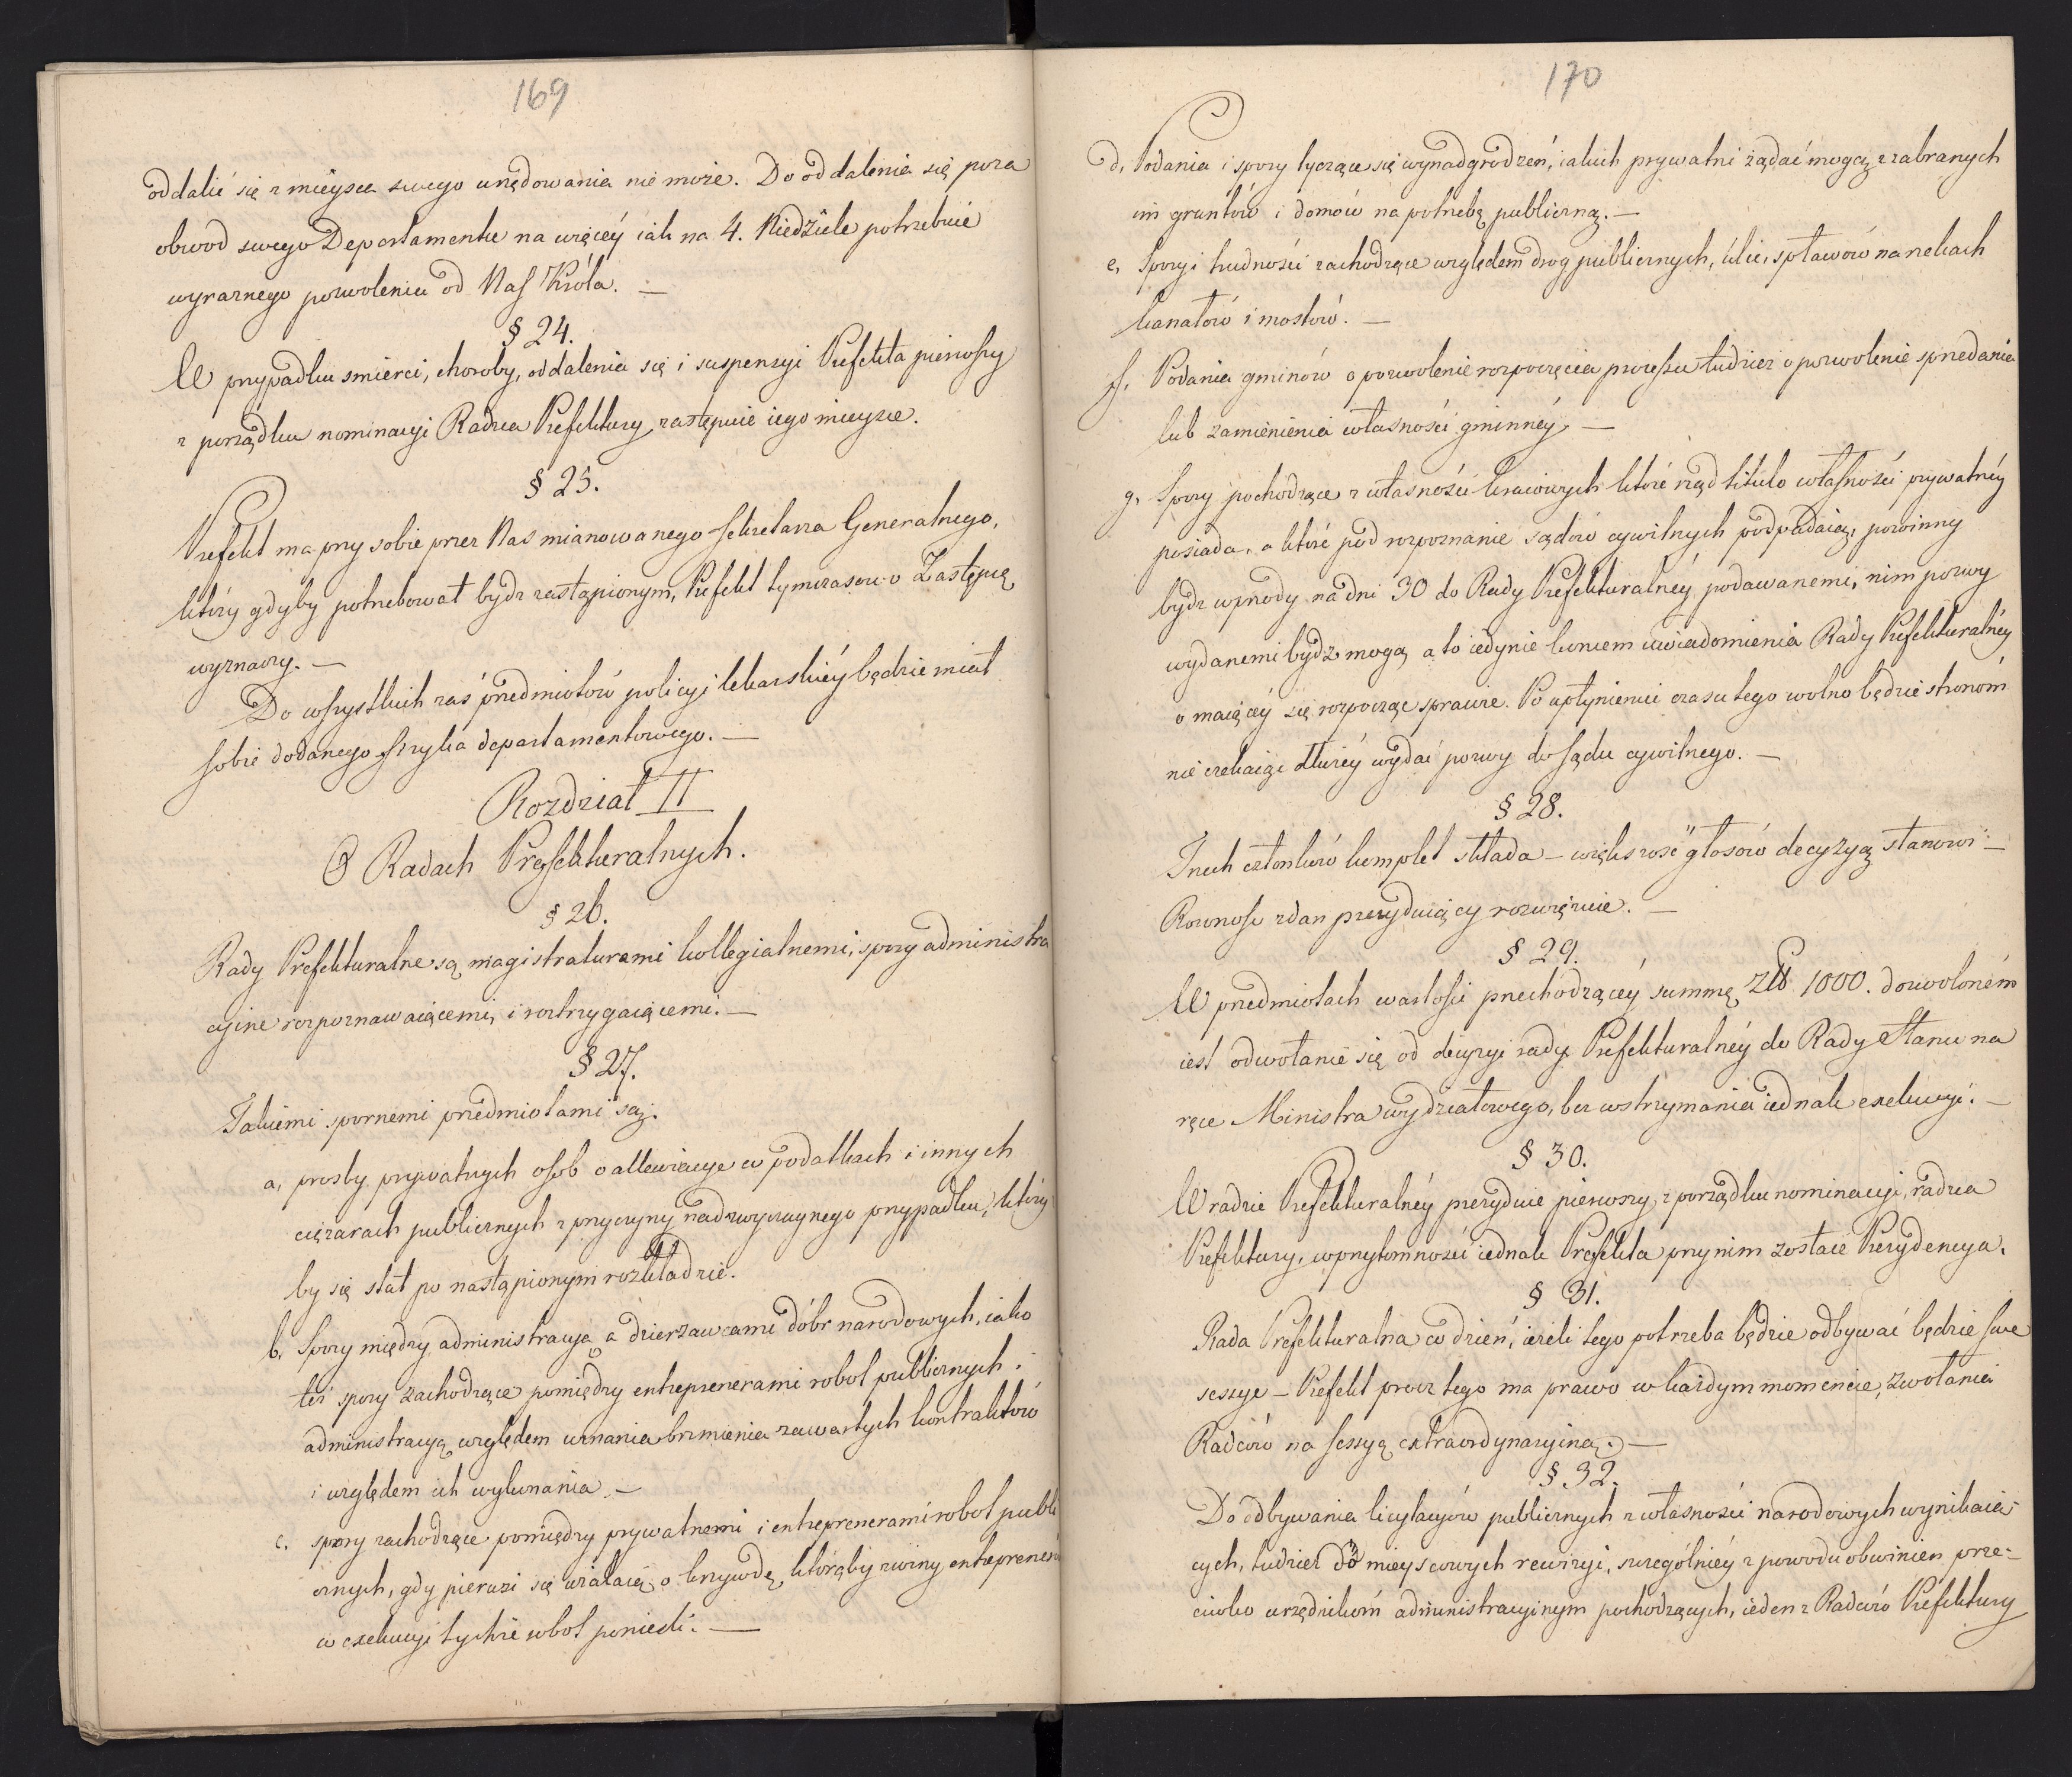 169
oddalić się z mieysca swego urzędowania nie może. Do oddalenia się poza
obwod swego Departamentu na więcéy iak na 4. Niedziele potrzebuie
wyraznego pozwolenia od Nas Króla. —
§ 24.
W przypadku smierci, choroby, oddalenia się i suspensyi Prefekta pierwszy
z porządku nominacyi Radzca Prefektury zastępuie iego mieysce.
§ 25.
Prefekt ma przy sobie przez Nas mianowanego Sekretarza Generalnego,
który gdyby potrzebował bydz zastąpionym, Prefekt tymczasowo Zastępcę
wyznaczy. —
Do wszystkich zaś przedmiotów policyi lekarskiéy będzie miał
sobie dodanego fizyka departamentowego. —
Rozdział II
O Radach Prefekturalnych.
§ 26.
Rady Prefekturalne są magistraturami kollegialnemi, spory administra
cyine rozpoznawaiącemi, i roztrzygaiącemi. —
§ 27.
Takiemi spornemi przedmiotami są:
a, prosby prywatnych osob o allewiacye w podatkach i innych
ciężarach publicznych z przyczyny nadzwyczaynego przypadku, który
by się stał po nastąpionym rozkładzie.
b, Spory między administracyą a dzierzawcami dóbr narodowych, iako
też spory zachodzące pomiędzy entreprenerami robot publicznych i
administracyą względem uznania brzmienia zawartych kontraktów
i względem ich wykonania. —
c. spory zachodzące pomiędzy prywatnemi i entreprenerami robot publi
cznych, gdy pierwsi się użalaią o krzywdę, którąby z winy entreprenerów
w exekucyi tychże robot ponieśli. —
170
d, Podania i spory tyczące się wynadgrodzeń, iakich prywatni żądać mogą z zabranych
im gruntów i domów na potrzebę publiczną. —
e, Spory i trudności zachodzące względem drog publicznych, ulic, spławów na rzekach
kanałów i mostów. —
f, Podania gminów o pozwolenie rozpoczęcia processu tudzież o pozwolenie sprzedania
lub zamienienia własności gminnéy —
g, Spory pochodzące z własności kraiowych które rząd titulo własności prywatnéy
posiada, a które pod rozpoznanie sądów cywilnych podpadaią, powinny
bydz wprzody na dni 30 do Rady Prefekturalnéy podawanemi, nim pozwy
wydanemi bydz mogą a to iedynie końcem uwiadomienia Rady Prefekturalnéy
o maiącéy się rozpocząć sprawie. Po upłynieniu czasu tego wolno będzie stronom
nie czekaiąc dłużéy wydać pozwy do sądu cywilnego. —
§ 28.
Trzech członków komplet składa — większość głosów decyzyą stanowi —
Rownosc zdan prezyduiący rozwięzuie. —
§ 29.
W przedmiotach wartości przechodzącéy summę zł 1000. dozwoloném
iest odwołanie się od decyzyi rady Prefekturalnéy do Rady Stanu na
ręce Ministra wydziałowego, bez wstrzymania iednak exekucyi. —
§ 30.
W radzie Prefekturalnéy prezyduie pierwszy z porządku nominacyi, radzca
Prefektury, w przytomności iednak Prefekta przy nim zostaie Prezydencya.
§ 31.
Rada Prefekturalna co dzień, ieżeli tego potrzeba będzie odbywać będzie swe
sessye — Prefekt procz tego ma prawo w każdym momencie, zwołania
Radców na sessyą extraordynaryiną. —
§ 32.
Do odbywania licytacyów publicznych z własności narodowych wynikaią-
cych, tudzież do mieyscowych rewizyi, szczególniéy z powodu obwinien prze-
ciwko urzędnikom administracyinym pochodzących, ieden z Radców Prefektury